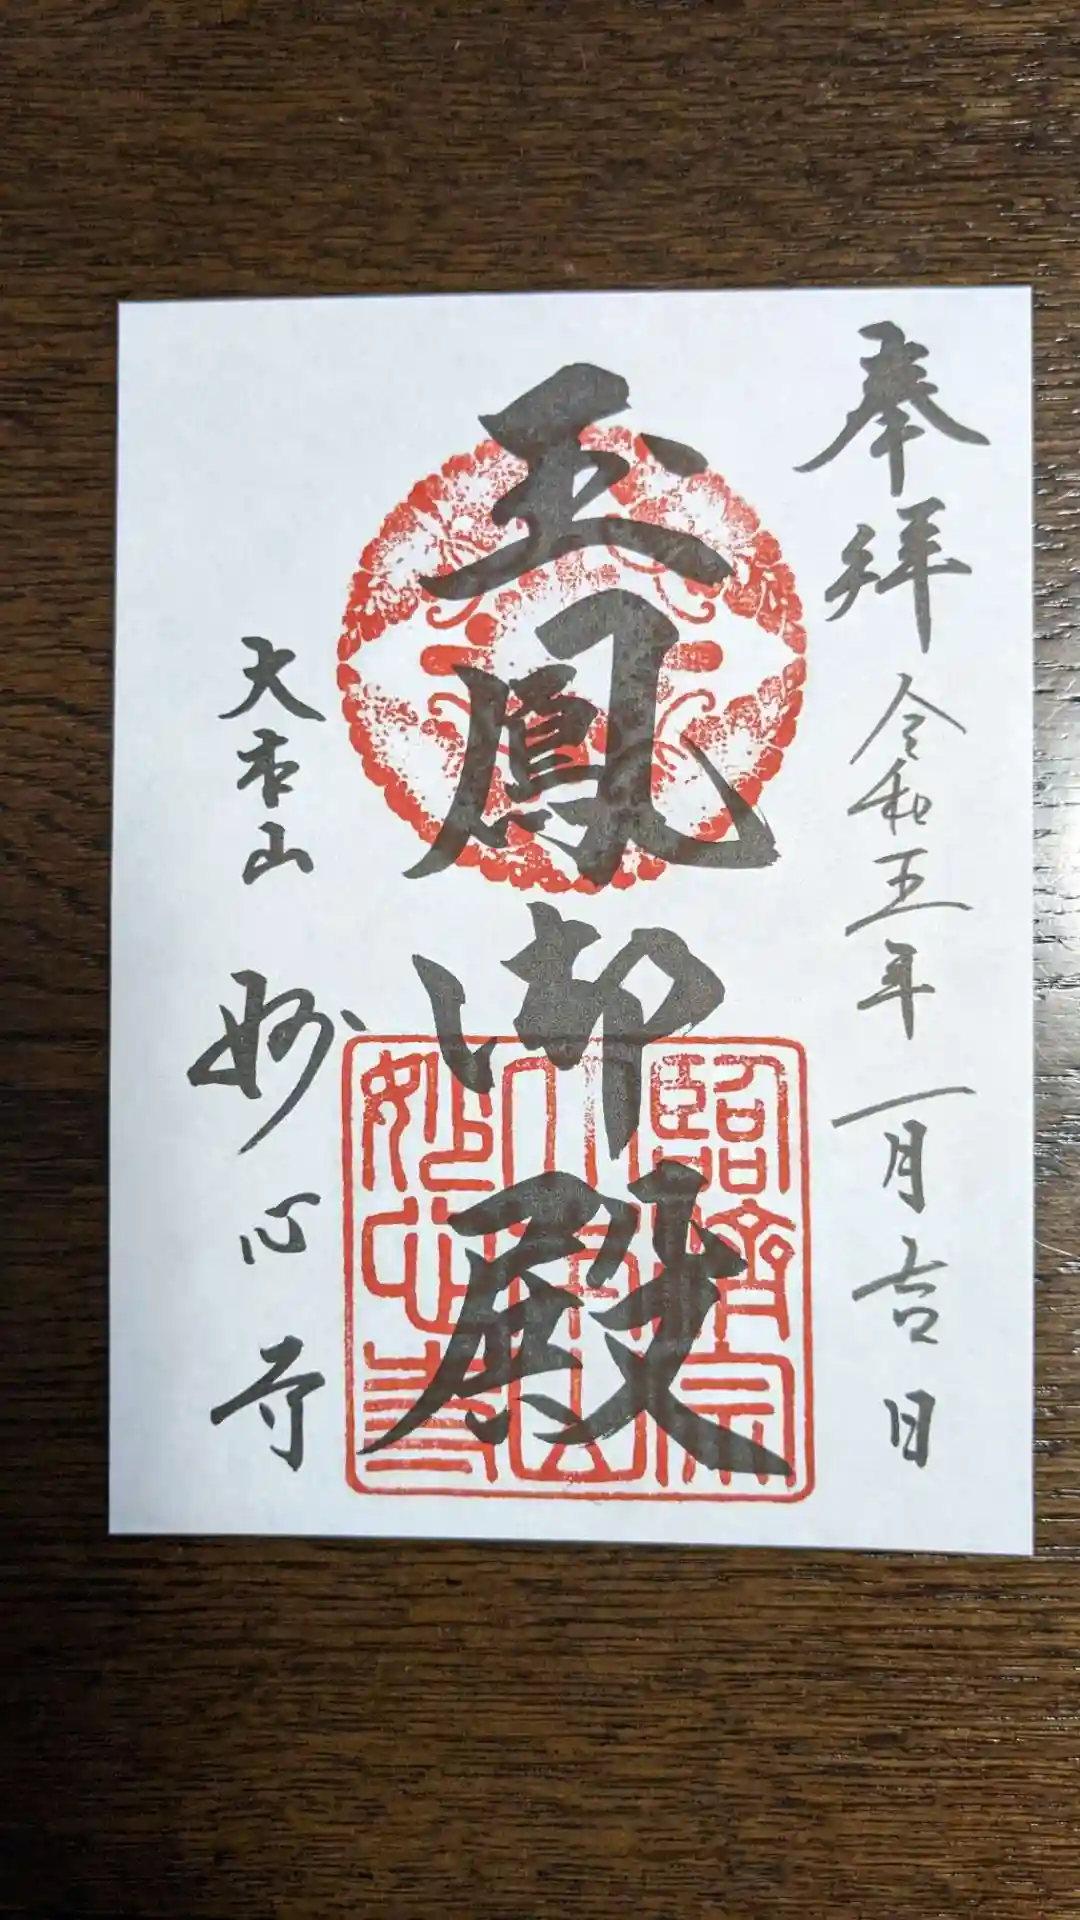 奉拜 令和五年 一月吉日
玉鳳御殿
大本山 妙心寺
臨済宗
大本山
妙心寺